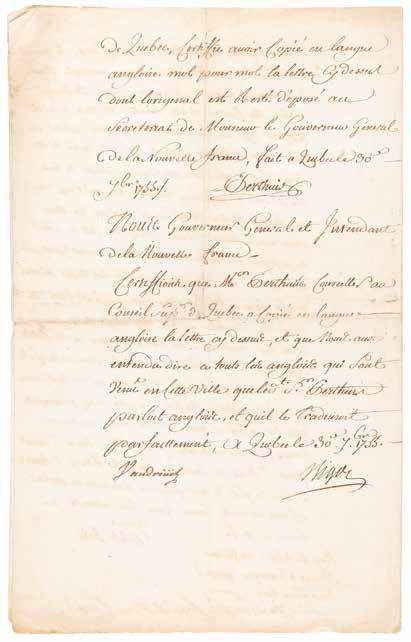 de Quebec, Certiffie avoir Copié en langue
angloise mot pour mot la lettre cy dessus
dont loriginal est Resté déposé au
Secretariat de Monsieur le Gouverneur General
de la Nouvelle france, fait a Quebec le 30e
7bre 1755./. Perthuis
Nous Gouverneur General et Intendant
de la Nouvelle france
Certiffions que Mr Perthuis Conseiller au
Conseil supr. de Quebec a Copié en langue
angloise la lettre cy dessus, et que Nous avons
entendu dire a touts les anglois qui sont
Venus en Cette Ville que led. Sr Perthuis
parloit anglois, et quil le Traduisoit
parfaittement, a Quebec le 30e 7bre 1755.
Vaudreuil Bigot